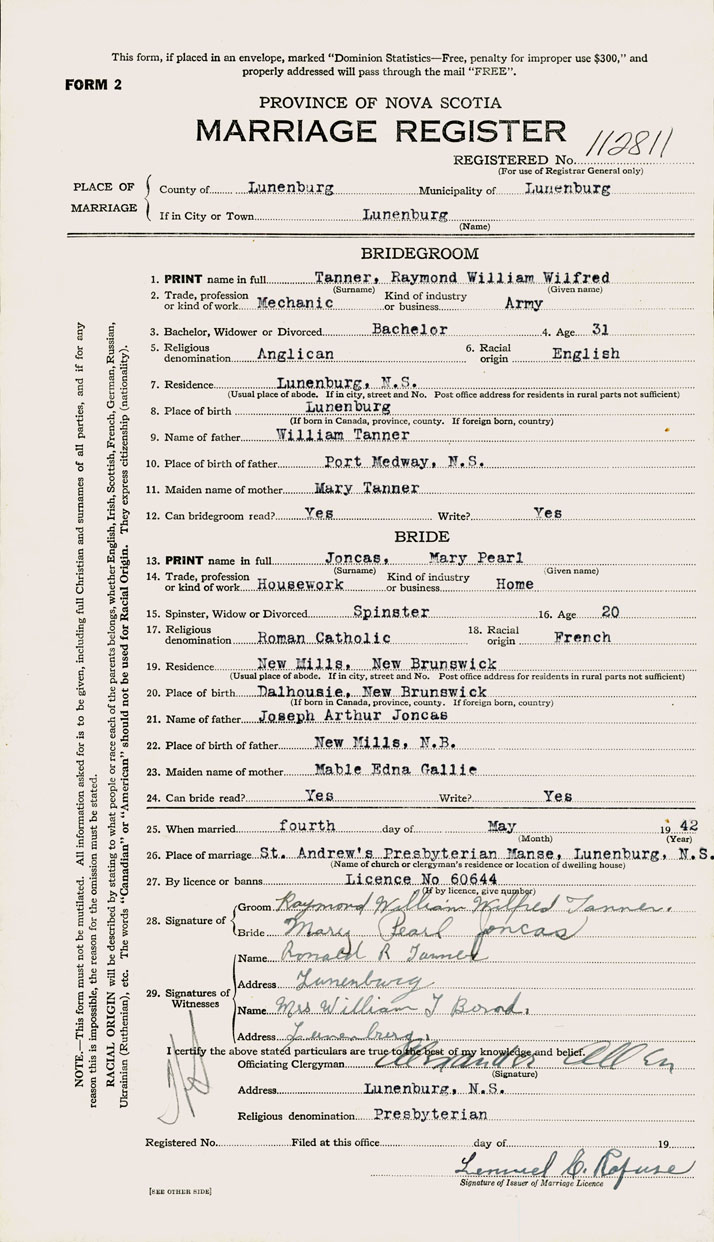 This form, if placed in an envelope, marked "Dominion Statistics—Free, penalty for improper use $300," and
properly addressed will pass through the mail "FREE".
FORM 2
PROVINCE OF NOVA SCOTIA
MARRIAGE REGISTER
REGISTERED No. 112811
(For use of Registrar General only)
PLACE OF MARRIAGE
County of Lunenburg Municipality of Lunenburg
If in City or Town Lunenburg
(Name)
BRIDEGROOM
1. PRINT name in full Tanner, Raymond William Wilfred
(Surname) (Given name)
2. Trade, profession or kind of work Mechanic Kind of industry or business Army
3. Bachelor, Widower or Divorced Bachelor 4. Age 31
5. Religious denomination Anglican 6. Racial origin English
7. Residence Lunenburg, N.S.
(Usual place of abode. If in city, street and No. Post office address for residents in rural parts not sufficient)
8. Place of birth Lunenburg
(If born in Canada, province, county. If foreign born, country)
9. Name of father William Tanner
10. Place of birth of father Port Medway, N.S.
11. Maiden name of mother Mary Tanner
12. Can bridegroom read? Yes Write? Yes
BRIDE
13. PRINT name in full Joncas, Mary Pearl
(Surname) (Given name)
14. Trade, profession or kind of work Housework Kind of industry or business Home
15. Spinster, Widow or Divorced Spinster 16. Age 20
17. Religious denomination Roman Catholic 18. Racial origin French
19. Residence New Mills, New Brunswick
(Usual place of abode. If in city, street and No. Post office address for residents in rural parts not sufficient)
20. Place of birth Dalhousie, New Brunswick
(If born in Canada, province, county. If foreign born, country)
21. Name of father Joseph Arthur Joncas
22. Place of birth of father New Mills, N.B.
23. Maiden name of mother Mable Edna Gallie
24. Can bride read? Yes Write? Yes
25. When married fourth day of May 19 42
(Month) (Year)
26. Place of marriage St. Andrew's Presbyterian Manse, Lunenburg, N.S.
(Name of church or clergyman's residence or location of dwelling house)
27. By licence or banns Licence No 60644
(If by licence, give number)
28. Signature of
Groom Raymond William Wilfred Tanner.
Bride Mary Pearl Joncas
29. Signatures of Witnesses
Name Ronald R Tanner
Address Lunenburg
Name Mrs William T
Address Lunenberg,
I certify the above stated particulars are true to the best of my knowledge and belief.
Officiating Clergyman Allen
(Signature)
Address Lunenburg, N.S.
Religious denomination Presbyterian
Registered No. Filed at this office day of 19
Lemuel C. Rafuse
Signature of Issuer of Marriage Licence
[SEE OTHER SIDE]
NOTE.—This form must not be mutilated. All information asked for is to be given, including full Christian and surnames of all parties, and if for any
reason this is impossible, the reason for the omission must be stated.
RACIAL ORIGIN will be described by stating to what people or race each of the parents belongs, whether English, Irish, Scottish, French, German, Russian,
Ukrainian (Ruthenian), etc. The words "Canadian" or "American" should not be used for Racial Origin. They express citizenship (nationality).